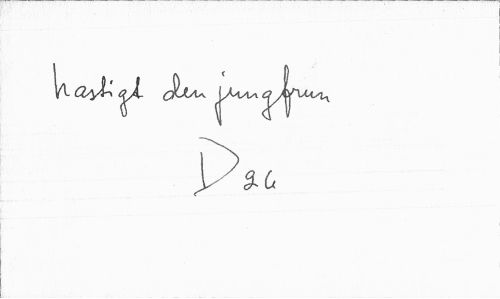 hastigt den jungfrun
D 26